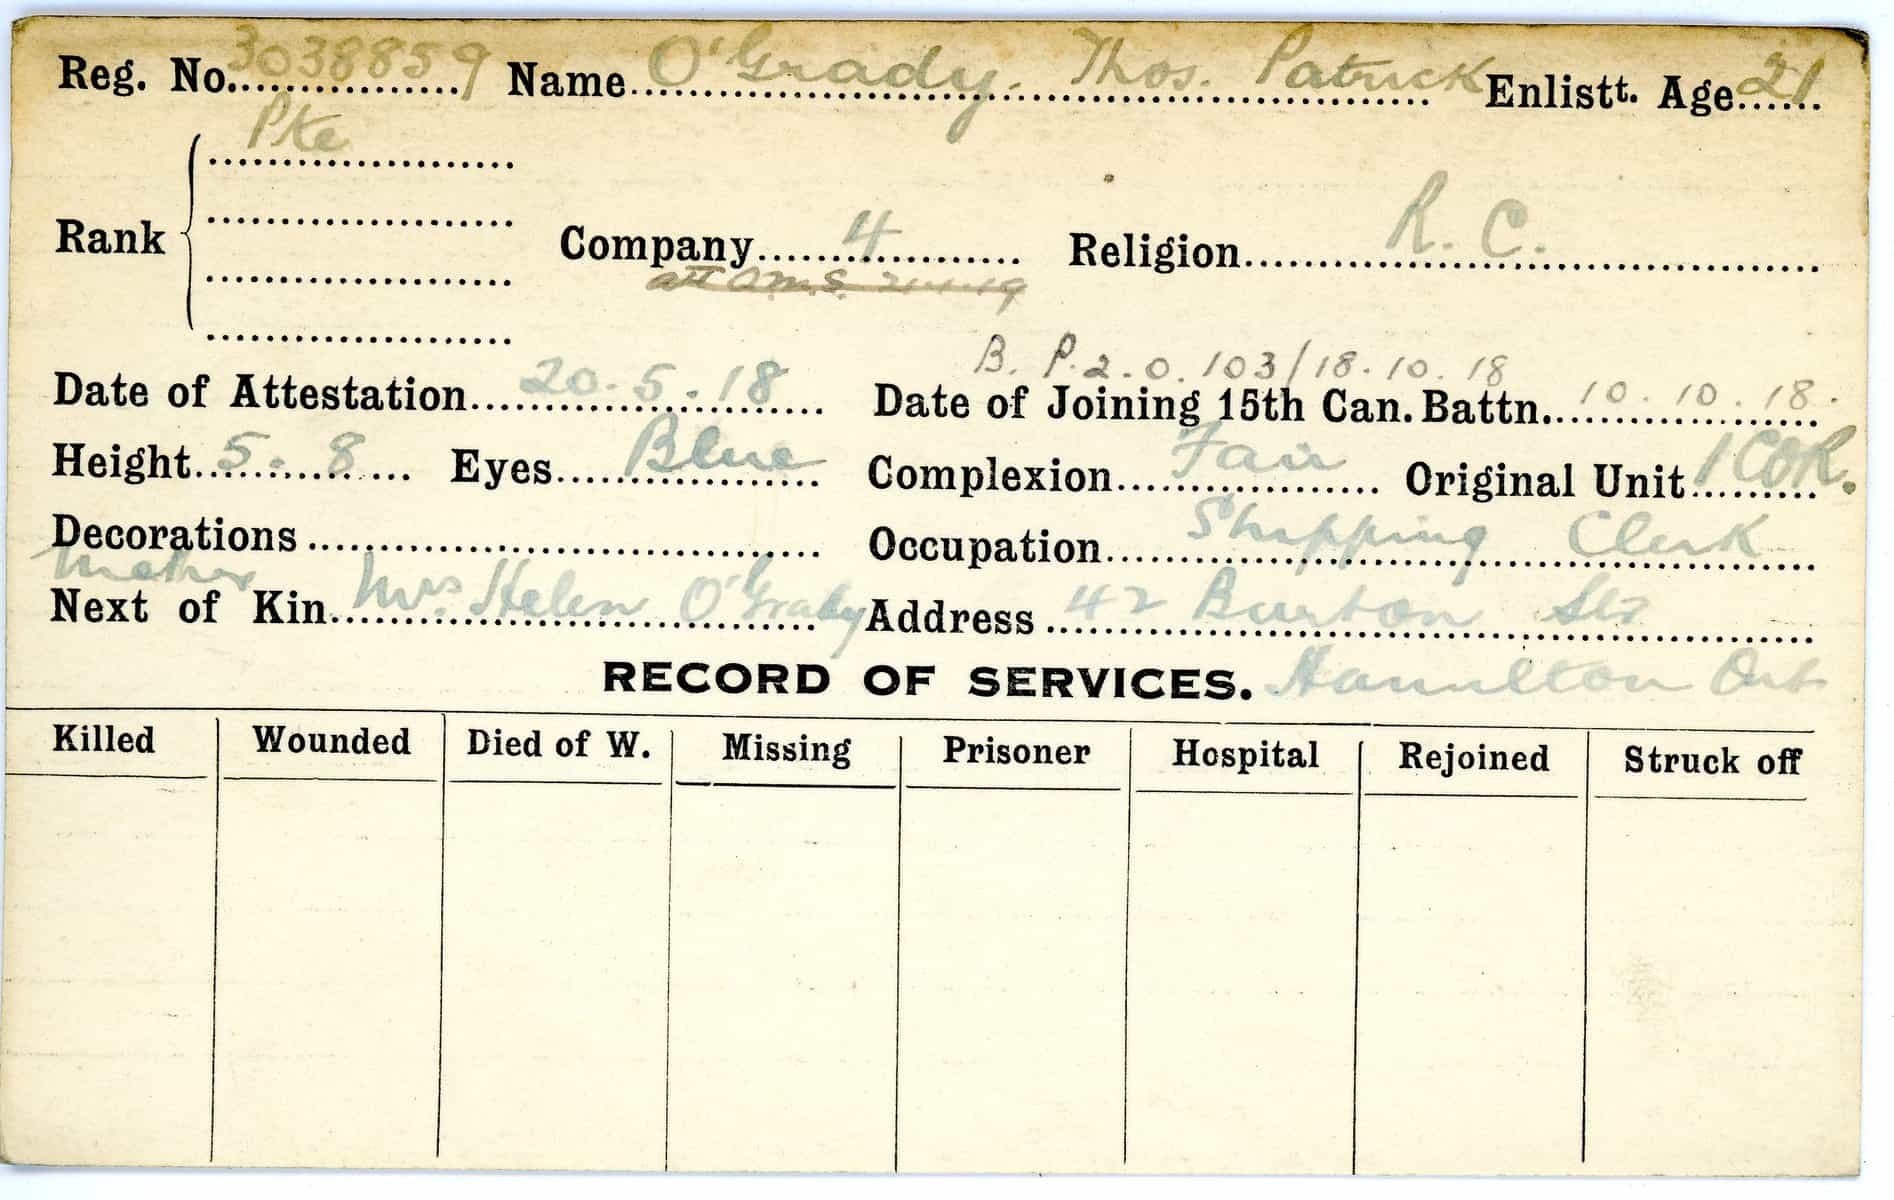 Reg. No. 3038859 Name O'Grady. Thos. Patrick Enlistt. Age 21
Pte
Rank Company 4 Religion R. C.
att 21-1-19
B. P. 2. 0. 103/18.10.18
Date of Attestation 20.5.18 Date of Joining 15th Can. Battn. 10.10.18.
Height 5.8 Eyes Blue Complexion Fair Original Unit 1 COR.
Decorations Occupation Shipping Clerk
Mother
Next of Kin Mrs. Helen O'Grady Address 42 Burton St
RECORD OF SERVICES. Hamilton Ont
Killed Wounded Died of W. Missing Prisoner Hospital Rejoined Struck off